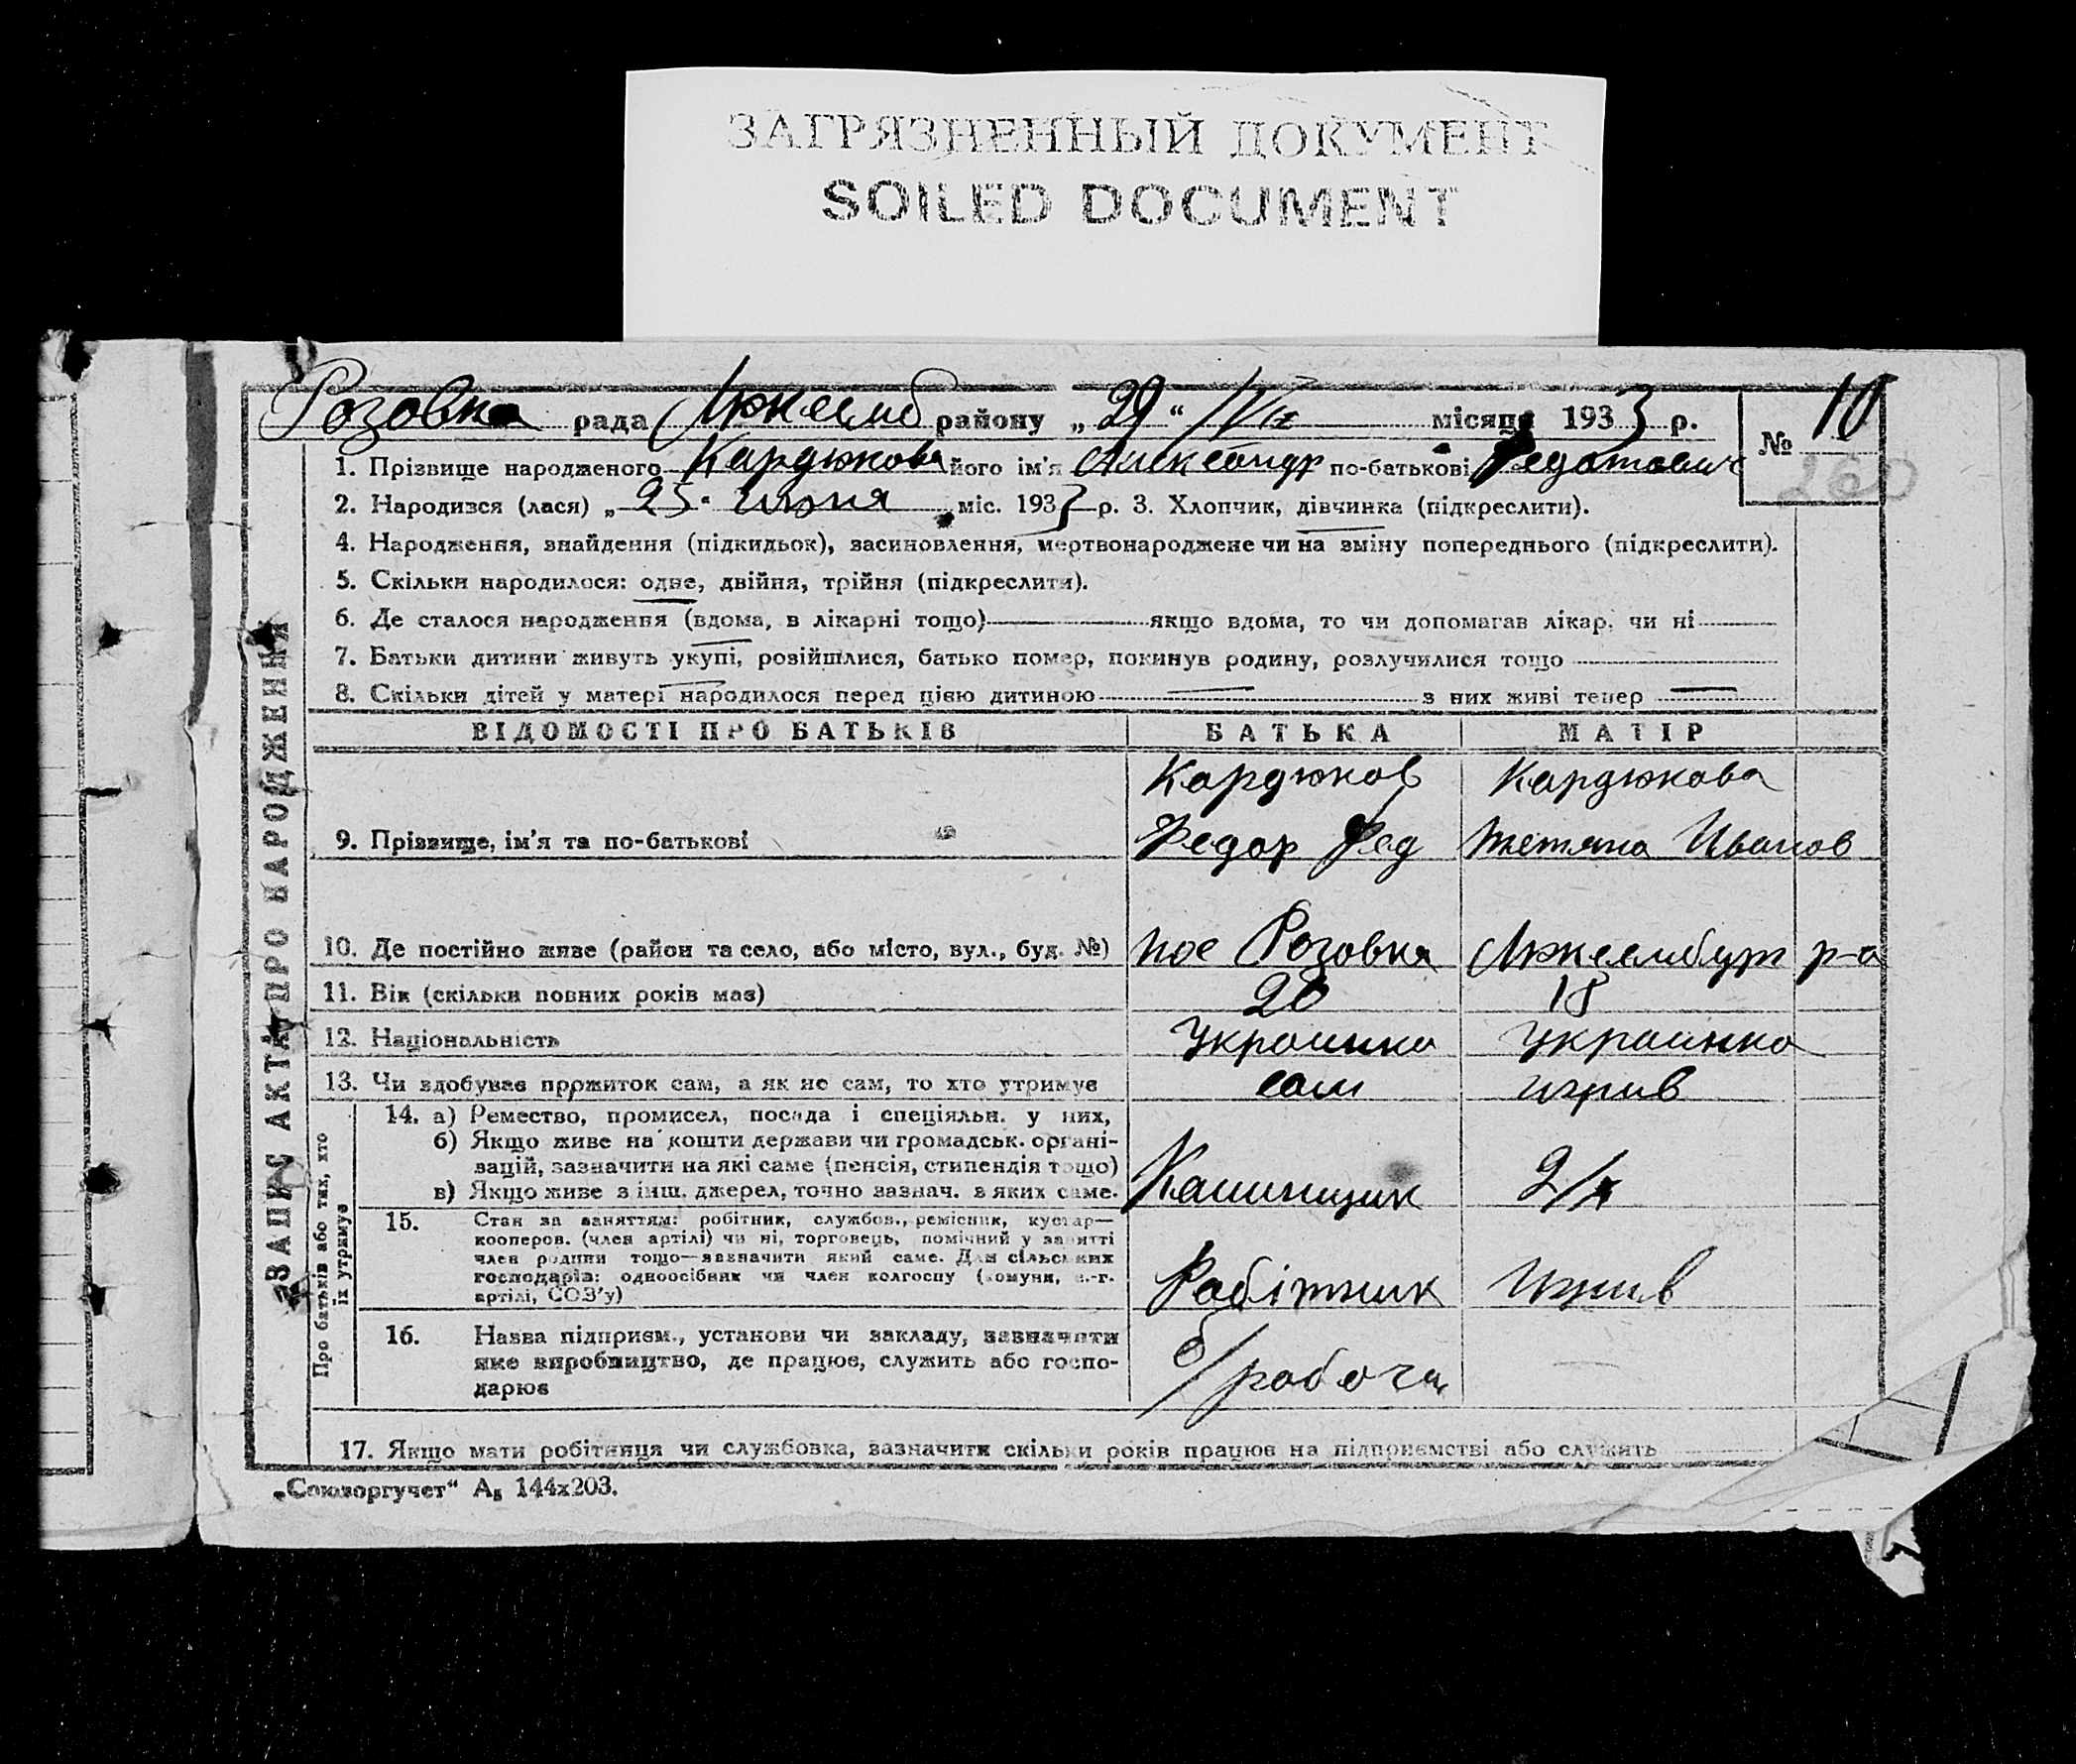 ЗАГРЯЗНЕННЫЙ ДОКУМЕНТ
SOILED DOCUMENT
Розовка рада Люксемб району „29“ місяця 1933 р.
№ 10
260
1. Прізвище народженого Кардюкова його ім'я Александр по-батькові
2. Народився (лася) „25“ июня міс. 1933 р. 3. Хлопчик, дівчинка (підкреслити).
4. Народження, знайдення (підкидьок), засиновлення, мертвонароджене чи на зміну попереднього (підкреслити).
5. Скільки народилося: одне, двійня, трійня (підкреслити).
6. Де сталося народження (вдома, в лікарні тощо) якщо вдома, то чи допомагав лікар, чи ні
7. Батьки дитини живуть укупі, розійшлися, батько помер, покинув родину, розлучилися тощо
8. Скільки дітей у матері народилося перед цією дитиною — з них живі тепер —
ЗАПИС АКТА ПРО НАРОДЖЕННЯ
ВІДОМОСТІ ПРО БАТЬКІВ БАТЬКА МАТІР
Кардюков Кардюкова
9. Прізвище, ім'я та по-батькові Федор Фед Тетяна Иванов
10. Де постійно живе (район та село, або місто, вул., буд. №) пос Розовка Люксембург р-а
11. Вік (скільки повних років має) 20 18
12. Національність Украинка украинка
13. Чи здобуває прожиток сам, а як не сам, то хто утримує сам ижрив
Про батьків або тих, хто їх утримує
14. а) Ремество, промисел, посада і спеціяльн. у них,
б) Якщо живе на кошти держави чи громадськ. органі-
зацій, зазначити на які саме (пенсія, стипендія тощо)
в) Якщо живе з інш. джерел, точно зазнач. з яких саме.
15. Стан за заняттям: робітник, службов., ремісник, кустар—
кооперов. (член артілі) чи ні, торговець, помічний у занятті
член родини тощо—зазначити який саме. Для сільських
господарів: одноосібник чи член колгоспу (комуни, с.-г.
артілі, СОЗ'у)
Робітник Ижрив
16. Назва підприєм., установи чи закладу, зазначити
яке виробництво, де працює, служить або госпо-
дарює
17. Якщо мати робітниця чи службовка, зазначити скільки років працює на підприємстві або служить
„Союзоргучет“ А₅ 144х203.